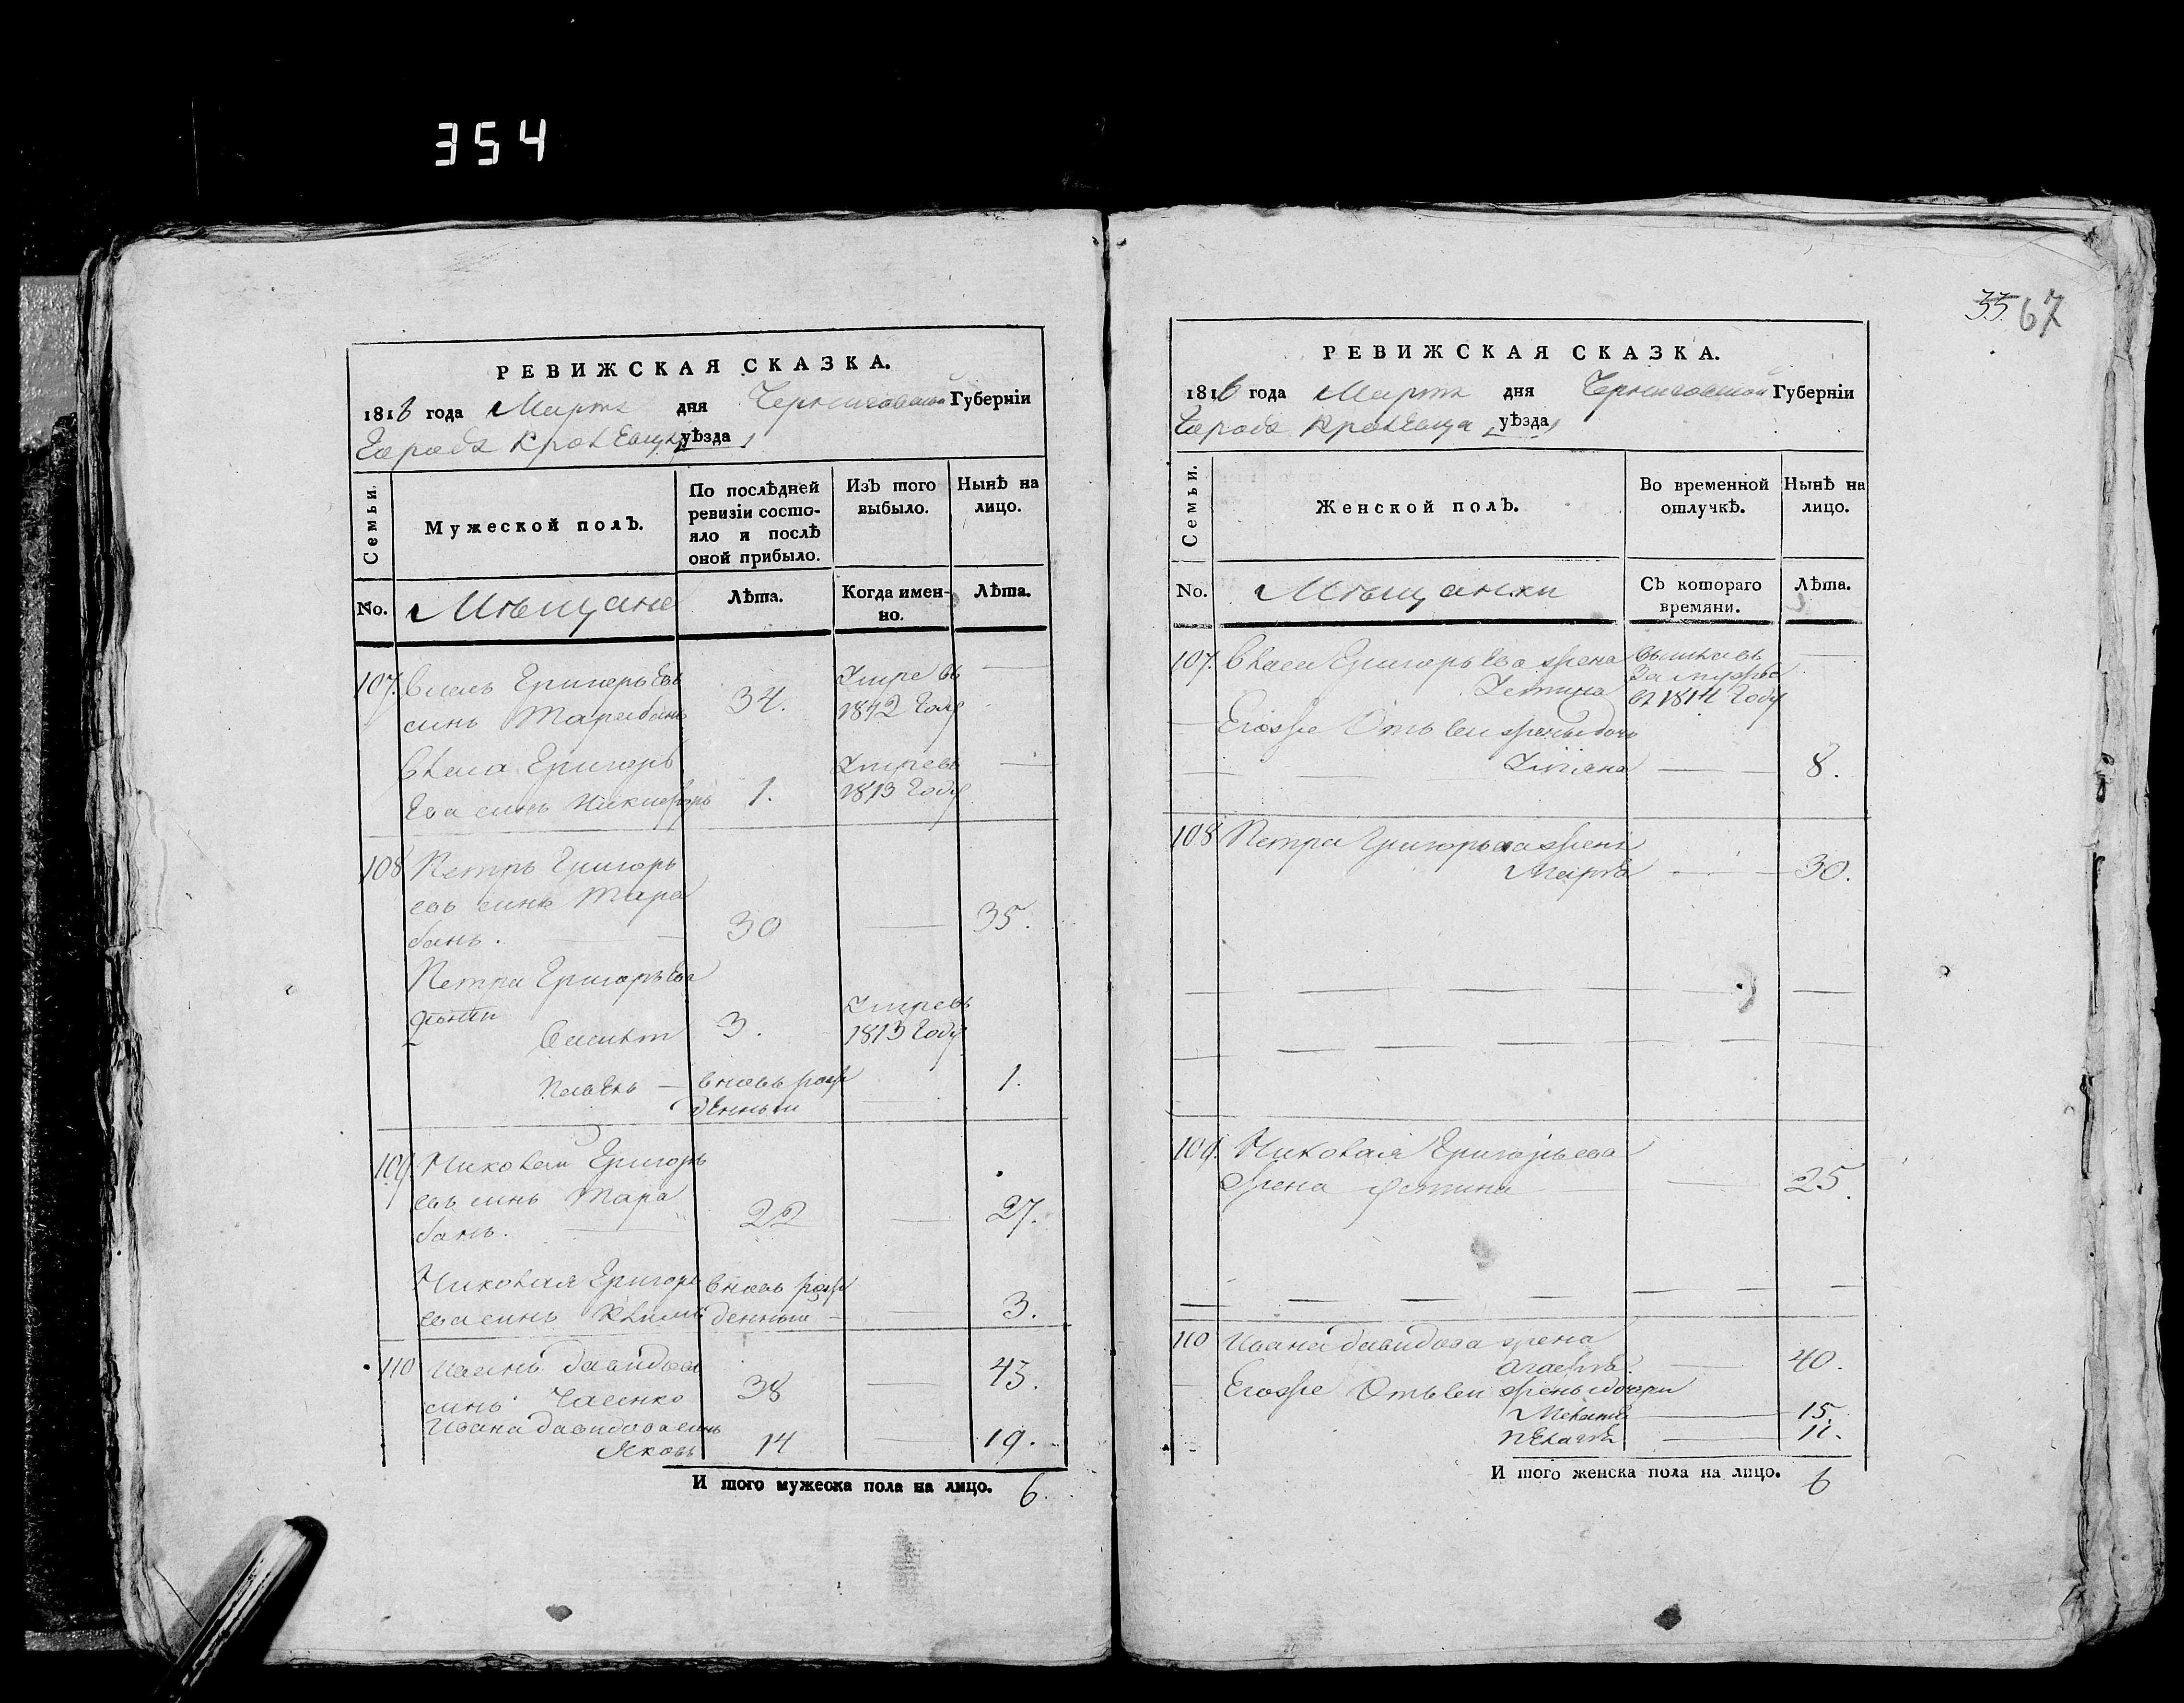 354
РЕВИЖСКАЯ СКАЗКА.
1816 года Марта дня Черниговской Губерніи
Города Кролевца уѣзда
Семьи.
Мужеской полъ.
По послѣдней
ревизіи состо-
яло и послѣ
оной прибыло.
Изъ того
выбыло.
Нынѣ на
лицо.
No.
Мѣщане
Лѣта.
Когда имен-
но.
Лѣта.
107. Григорьевъ
синъ Тарабанъ 34. Умре въ
1812 Году
Григорь
ева синъ Никифоръ 1. Умре въ
1813 Году
108 Петръ Григорь
евъ синъ Тара
банъ. 30 35.
Петра Григорьева
3. Умре въ
1813 Году
вновь рож
денный 1.
109. Николай Григорь
евъ синъ Тара
банъ. 22 27.
Николая Григорь
ева синъ Климъ вновь рож
денный 3.
110 Иванъ Давидовъ
синъ 38 43.
Ивана Давидова синъ
Яковъ 14 19.
И того мужеска пола на лицо. 6.
33. 67
РЕВИЖСКАЯ СКАЗКА.
1816 года Марта дня Черниговской Губерніи
Города Кролевца уѣзда
Семьи.
Женской полъ.
Во временной
отлучкѣ.
Нынѣ на
лицо.
No.
Мѣщанки
Съ котораго
времяни.
Лѣта.
107. Григорьева жена
въ замужье
въ 1814 Году
Егоже Отъ сей жены дочь
Уліяна 8.
108 Петра Григорьева жена
Марфа 30.
109. Николая Григорьева
жена 25.
110 Ивана Давидова жена
Агафія 40.
Егоже Отъ сей жены дочери
15.
Пелагѣя 11.
И того женска пола на лицо. 6